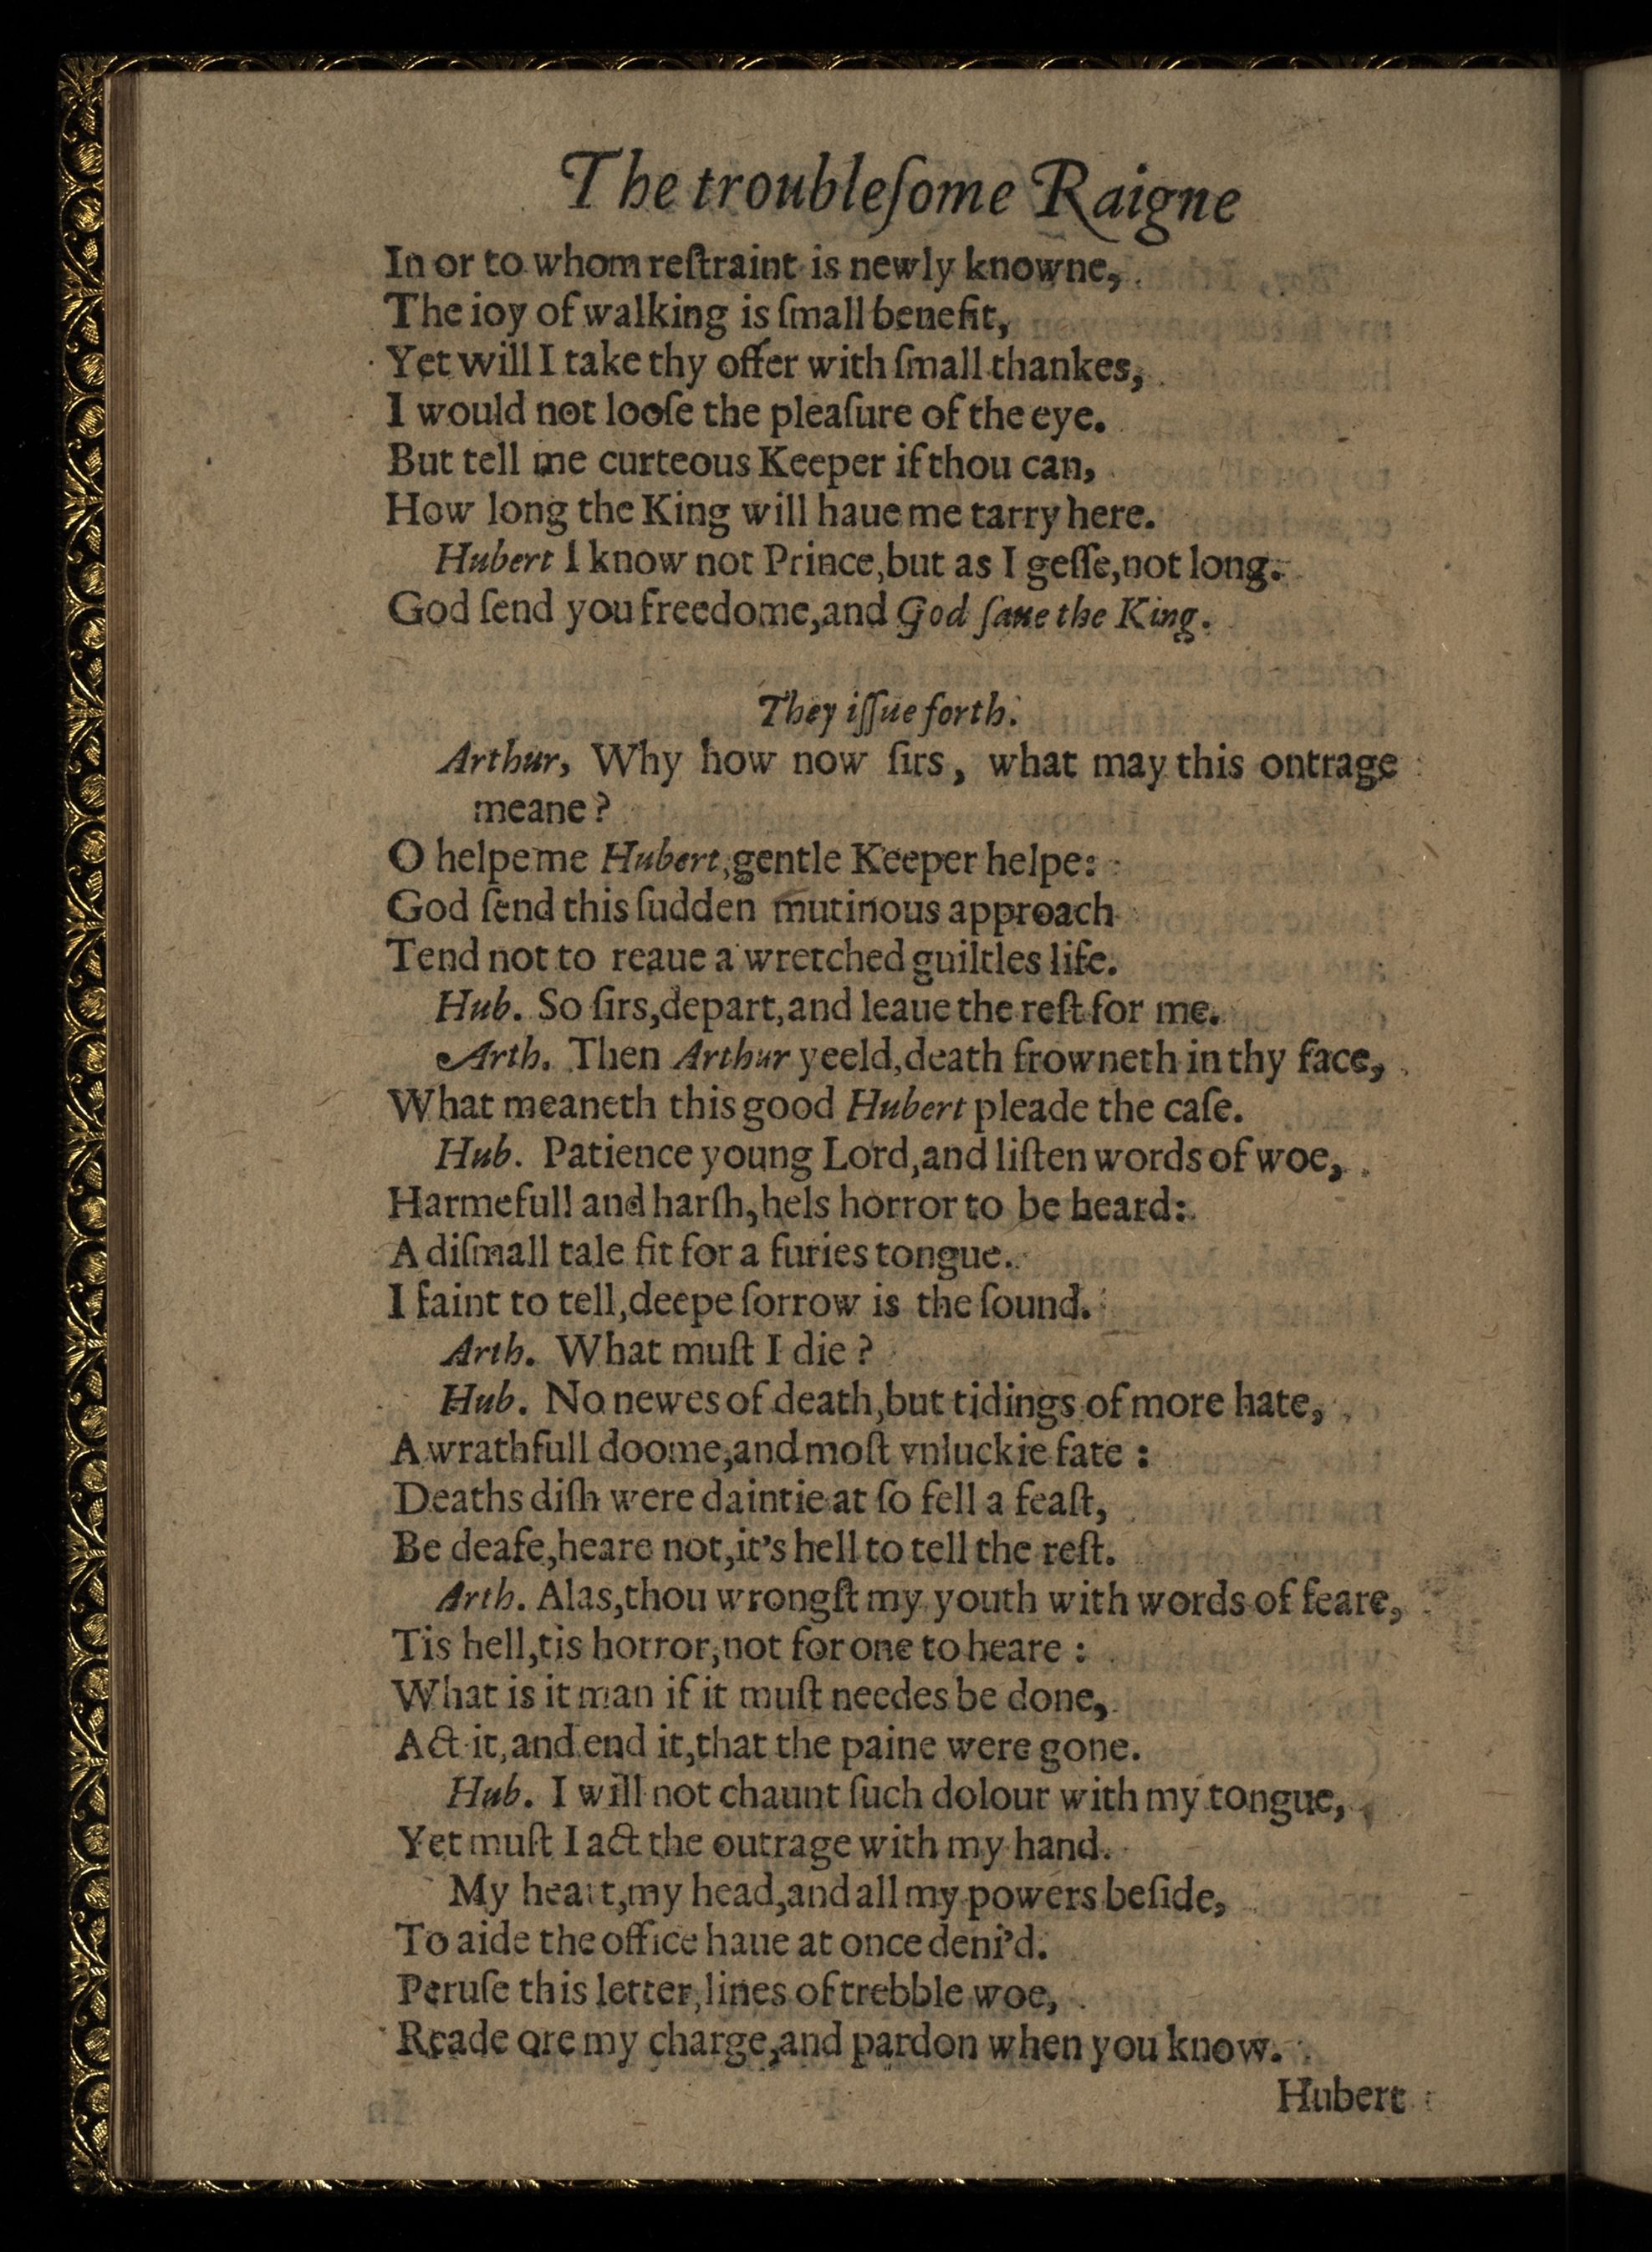 The troubleſome Raigne
In or to whom reſtraint is newly knowne,
The ioy of walking is ſmall benefit,
Yet will I take thy offer with ſmall thankes,
I would not looſe the pleaſure of the eye.
But tell me curteous Keeper if thou can,
How long the King will haue me tarry here.
Hubert I know not Prince, but as I geſſe, not long.
God ſend you freedome, and God ſaue the King.
They iſſue forth.
Arthur, Why how now ſirs, what may this ontrage
meane?
O helpe me Hubert, gentle Keeper helpe:
God ſend this ſudden mutinous approach
Tend not to reaue a wretched guiltles life.
Hub. So ſirs, depart, and leaue the reſt for me.
Arth. Then Arthur yeeld, death frowneth in thy face,
What meaneth this good Hubert pleade the caſe.
Hub. Patience young Lord, and liſten words of woe,
Harmefull and harſh, hels horror to be heard:
A diſmall tale fit for a furies tongue.
I faint to tell, deepe ſorrow is the ſound.
Arth. What muſt I die?
Hub. No newes of death, but tidings of more hate,
A wrathfull doome, and moſt vnluckie fate:
Deaths diſh were daintie at ſo fell a feaſt,
Be deafe, heare not, it's hell to tell the reſt.
Arth. Alas, thou wrongſt my youth with words of feare,
Tis hell, tis horror, not for one to heare:
What is it man if it muſt needes be done,
Act it, and end it, that the paine were gone.
Hub. I will not chaunt ſuch dolour with my tongue,
Yet muſt I act the outrage with my hand.
My heart, my head, and all my powers beſide,
To aide the office haue at once deni'd.
Peruſe this letter, lines of trebble woe,
Reade ore my charge, and pardon when you know.
Hubert